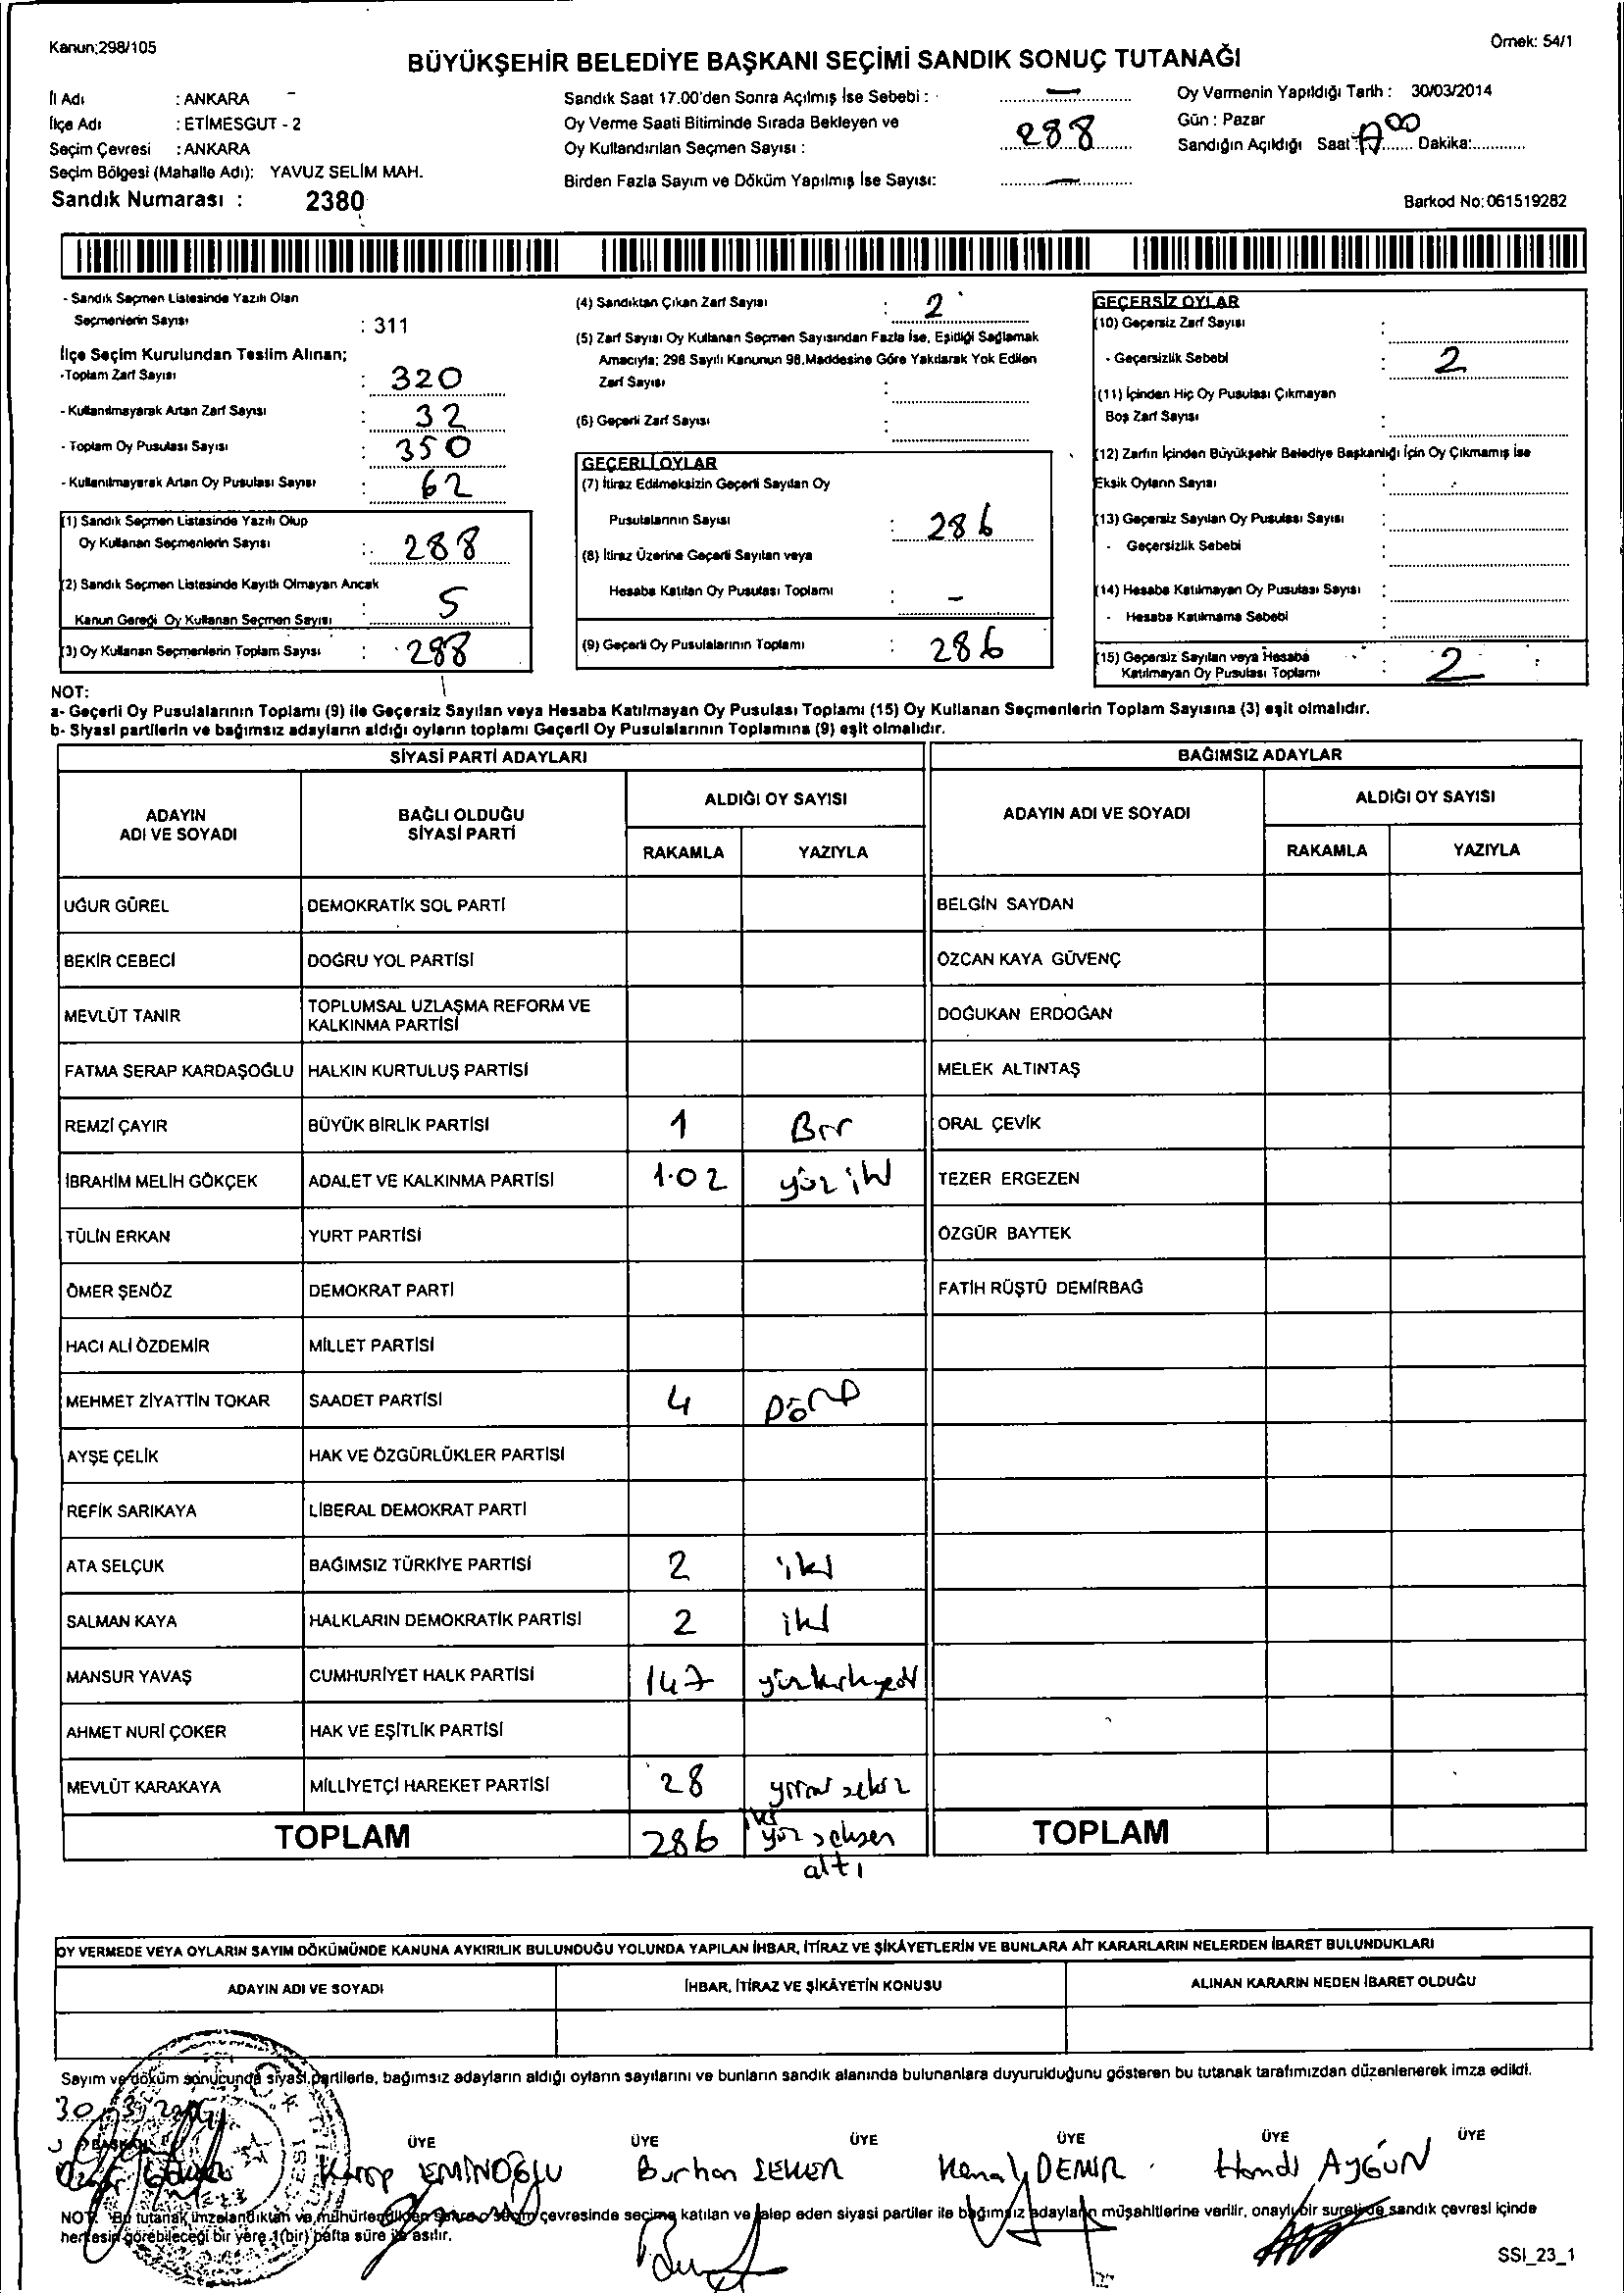 Kanun;298/105
Örnek: 54/1
BÜYÜKŞEHİR BELEDİYE BAŞKANI SEÇİMİ SANDIK SONUÇ TUTANAĞI
İl Adı : ANKARA
İlçe Adı : ETİMESGUT - 2
Seçim Çevresi : ANKARA
Seçim Bölgesi (Mahalle Adı): YAVUZ SELİM MAH.
Sandık Numarası : 2380
Sandık Saat 17.00'den Sonra Açılmış İse Sebebi : —
Oy Verme Saati Bitiminde Sırada Bekleyen ve
Oy Kullandırılan Seçmen Sayısı : 288
Birden Fazla Sayım ve Döküm Yapılmış İse Sayısı: —
Oy Vermenin Yapıldığı Tarih : 30/03/2014
Gün : Pazar
Sandığın Açıldığı Saat: Dakika:
Barkod No:061519282
- Sandık Seçmen Listesinde Yazılı Olan
Seçmenlerin Sayısı : 311
İlçe Seçim Kurulundan Teslim Alınan;
-Toplam Zarf Sayısı : 320
- Kullanılmayarak Artan Zarf Sayısı : 32
- Toplam Oy Pusulası Sayısı : 350
- Kullanılmayarak Artan Oy Pusulası Sayısı : 62
(1) Sandık Seçmen Listesinde Yazılı Olup
Oy Kullanan Seçmenlerin Sayısı : 288
(2) Sandık Seçmen Listesinde Kayıtlı Olmayan Ancak
Kanun Gereği Oy Kullanan Seçmen Sayısı : 5
(3) Oy Kullanan Seçmenlerin Toplam Sayısı : 288
(4) Sandıktan Çıkan Zarf Sayısı : 2
(5) Zarf Sayısı Oy Kullanan Seçmen Sayısından Fazla İse, Eşitliği Sağlamak
Amacıyla; 298 Sayılı Kanunun 98.Maddesine Göre Yakılarak Yok Edilen
Zarf Sayısı :
(6) Geçerli Zarf Sayısı :
GEÇERLİ OYLAR
(7) İtiraz Edilmeksizin Geçerli Sayılan Oy
Pusulalarının Sayısı : 286
(8) İtiraz Üzerine Geçerli Sayılan veya
Hesaba Katılan Oy Pusulası Toplamı : –
(9) Geçerli Oy Pusulalarının Toplamı : 286
GEÇERSİZ OYLAR
(10) Geçersiz Zarf Sayısı :
- Geçersizlik Sebebi : 2
(11) İçinden Hiç Oy Pusulası Çıkmayan
Boş Zarf Sayısı :
(12) Zarfın İçinden Büyükşehir Belediye Başkanlığı İçin Oy Çıkmamış ise
Eksik Oyların Sayısı :
(13) Geçersiz Sayılan Oy Pusulası Sayısı :
- Geçersizlik Sebebi :
(14) Hesaba Katılmayan Oy Pusulası Sayısı :
- Hesaba Katılmama Sebebi :
(15) Geçersiz Sayılan veya Hesaba
Katılmayan Oy Pusulası Toplamı : 2
NOT:
a- Geçerli Oy Pusulalarının Toplamı (9) ile Geçersiz Sayılan veya Hesaba Katılmayan Oy Pusulası Toplamı (15) Oy Kullanan Seçmenlerin Toplam Sayısına (3) eşit olmalıdır.
b- Siyasi partilerin ve bağımsız adayların aldığı oyların toplamı Geçerli Oy Pusulalarının Toplamına (9) eşit olmalıdır.
SİYASİ PARTİ ADAYLARI
ADAYIN ADI VE SOYADI
BAĞLI OLDUĞU SİYASİ PARTİ
ALDIĞI OY SAYISI
RAKAMLA YAZIYLA
UĞUR GÜREL DEMOKRATİK SOL PARTİ
BEKİR CEBECİ DOĞRU YOL PARTİSİ
MEVLÜT TANIR TOPLUMSAL UZLAŞMA REFORM VE
KALKINMA PARTİSİ
FATMA SERAP KARDAŞOĞLU HALKIN KURTULUŞ PARTİSİ
REMZİ ÇAYIR BÜYÜK BİRLİK PARTİSİ 1 Bir
İBRAHİM MELİH GÖKÇEK ADALET VE KALKINMA PARTİSİ 1.02 yüz iki
TÜLİN ERKAN YURT PARTİSİ
ÖMER ŞENÖZ DEMOKRAT PARTİ
HACI ALİ ÖZDEMİR MİLLET PARTİSİ
MEHMET ZİYATTİN TOKAR SAADET PARTİSİ 4 Dört
AYŞE ÇELİK HAK VE ÖZGÜRLÜKLER PARTİSİ
REFİK SARIKAYA LİBERAL DEMOKRAT PARTİ
ATA SELÇUK BAĞIMSIZ TÜRKİYE PARTİSİ 2 iki
SALMAN KAYA HALKLARIN DEMOKRATİK PARTİSİ 2 iki
MANSUR YAVAŞ CUMHURİYET HALK PARTİSİ 147 yüzkırkyedi
AHMET NURİ ÇOKER HAK VE EŞİTLİK PARTİSİ
MEVLÜT KARAKAYA MİLLİYETÇİ HAREKET PARTİSİ 28 yirmi sekiz
TOPLAM 286 iki yüz seksen
altı
BAĞIMSIZ ADAYLAR
ADAYIN ADI VE SOYADI
ALDIĞI OY SAYISI
RAKAMLA YAZIYLA
BELGİN SAYDAN
ÖZCAN KAYA GÜVENÇ
DOĞUKAN ERDOĞAN
MELEK ALTINTAŞ
ORAL ÇEVİK
TEZER ERGEZEN
ÖZGÜR BAYTEK
FATİH RÜŞTÜ DEMİRBAĞ
TOPLAM
OY VERMEDE VEYA OYLARIN SAYIM DÖKÜMÜNDE KANUNA AYKIRILIK BULUNDUĞU YOLUNDA YAPILAN İHBAR, İTİRAZ VE ŞİKÂYETLERİN VE BUNLARA AİT KARARLARIN NELERDEN İBARET BULUNDUKLARI
ADAYIN ADI VE SOYADI İHBAR, İTİRAZ VE ŞİKÂYETİN KONUSU ALINAN KARARIN NEDEN İBARET OLDUĞU
Sayım ve döküm sonucunda siyasi partilerle, bağımsız adayların aldığı oyların sayılarını ve bunların sandık alanında bulunanlara duyurulduğunu gösteren bu tutanak tarafımızdan düzenlenerek imza edildi.
BAŞKAN ÜYE ÜYE ÜYE ÜYE ÜYE ÜYE
EMİNOĞLU Burhan ŞEKER Kemal DEMİR AYGÜN
NOT: Bu tutanak imzalandıktan ve mühürlendikten sonra o seçim çevresinde seçime katılan ve talep eden siyasi partiler ile bağımsız adayların müşahitlerine verilir, onaylı bir suretide sandık çevresi içinde
herkesin görebileceği bir yere 1(bir) hafta süre ile asılır.
SSI_23_1